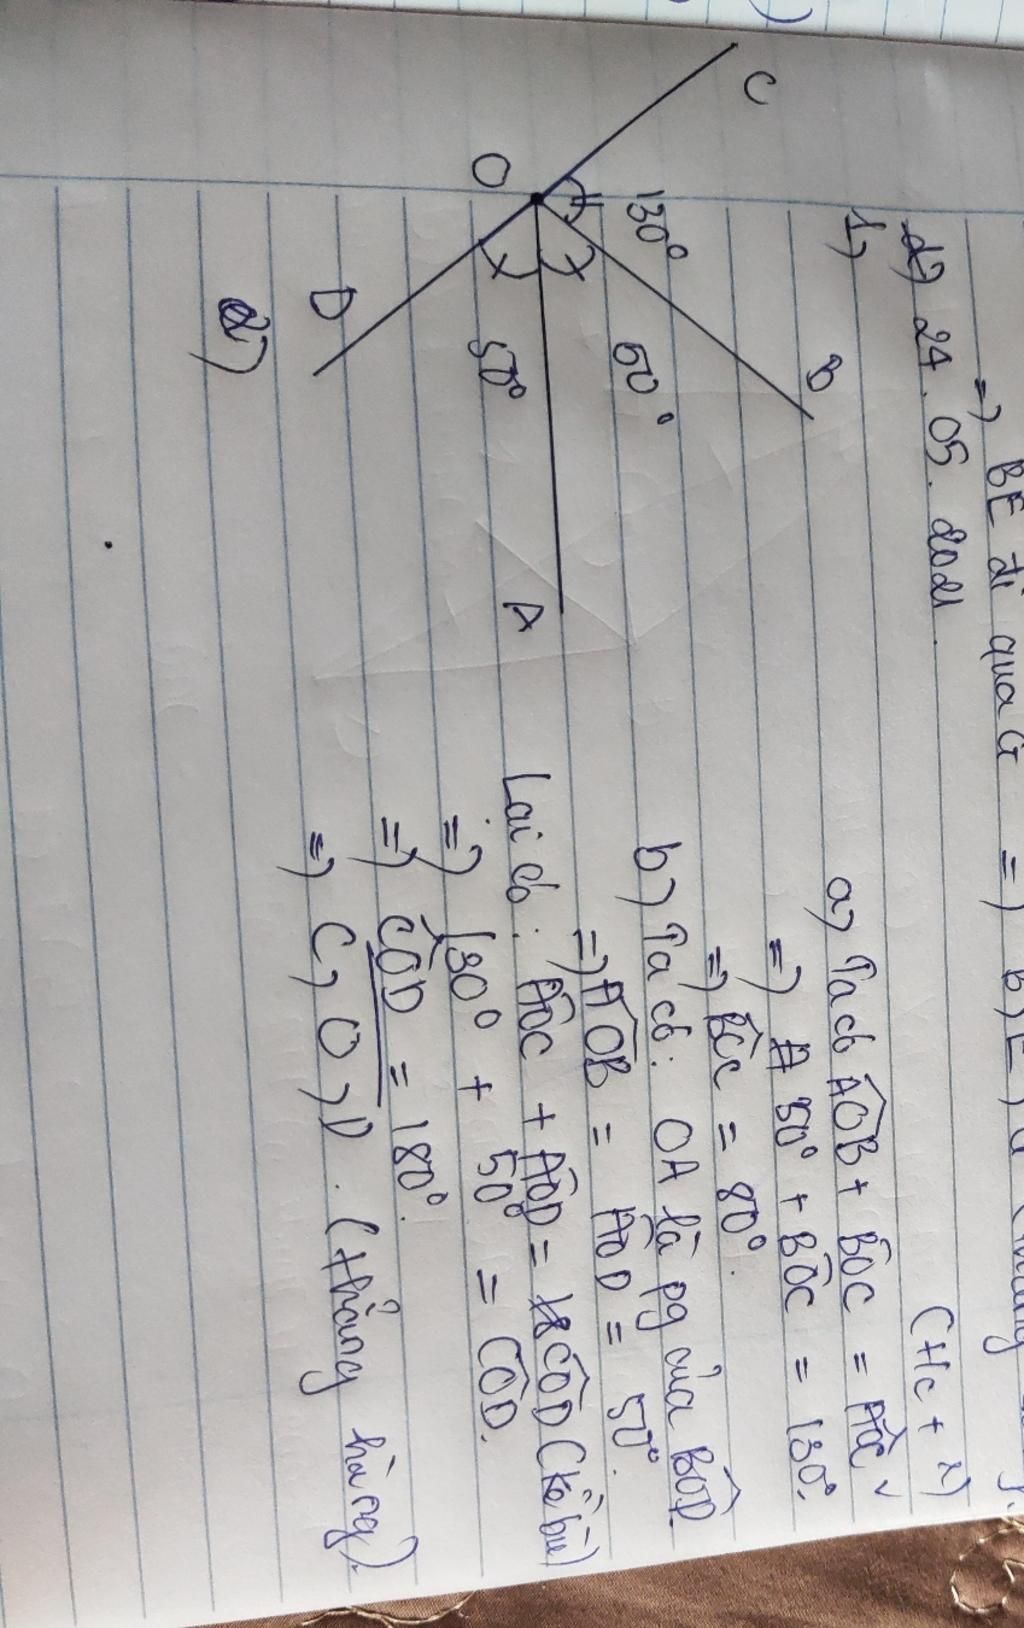 => BE đi qua G => B, E, G
d) 24. 05. 2021.
(Hc + x)
1)
C
130°
B
50°
O
50°
A
D
a) Ta có AOB + BOC = AOC
=> 50° + BOC = 130°.
=> BOC = 80°.
b) Ta có: OA là pg của BOD.
=> AOB = AOD = 50°.
Lại có: AOC + AOD = COD (kề bù)
=> 130° + 50° = COD.
=> COD = 180°.
=> C, O, D. (thẳng hàng).
2)